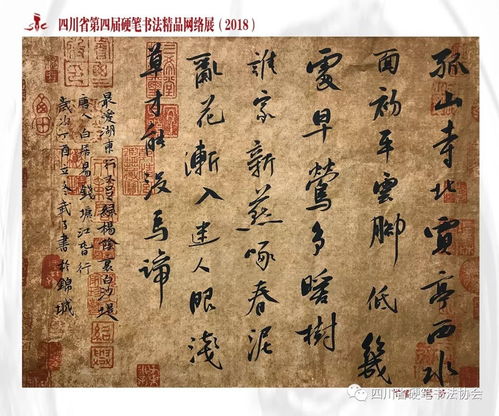 四川省第四届硬笔书法精品网络展（2018）
孤山寺北賈亭西水
面初平雲腳低幾
處早鶯爭暖樹
誰家新燕啄春泥
亂花漸入迷人眼淺
草才能沒馬蹄
最愛湖東行不足綠楊陰裏白沙堤
唐人白居易錢塘江春行
歲次丁酉立冬武子書於錦城
四川省硬笔书法协会